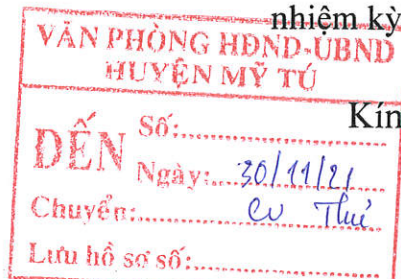 nhiệm kỳ
VĂN PHÒNG HĐND-UBND
HUYỆN MỸ TÚ
Kín
ĐẾN
Số:
Ngày: 30/11/21
Chuyển: CV Thu
Lưu hồ sơ số: